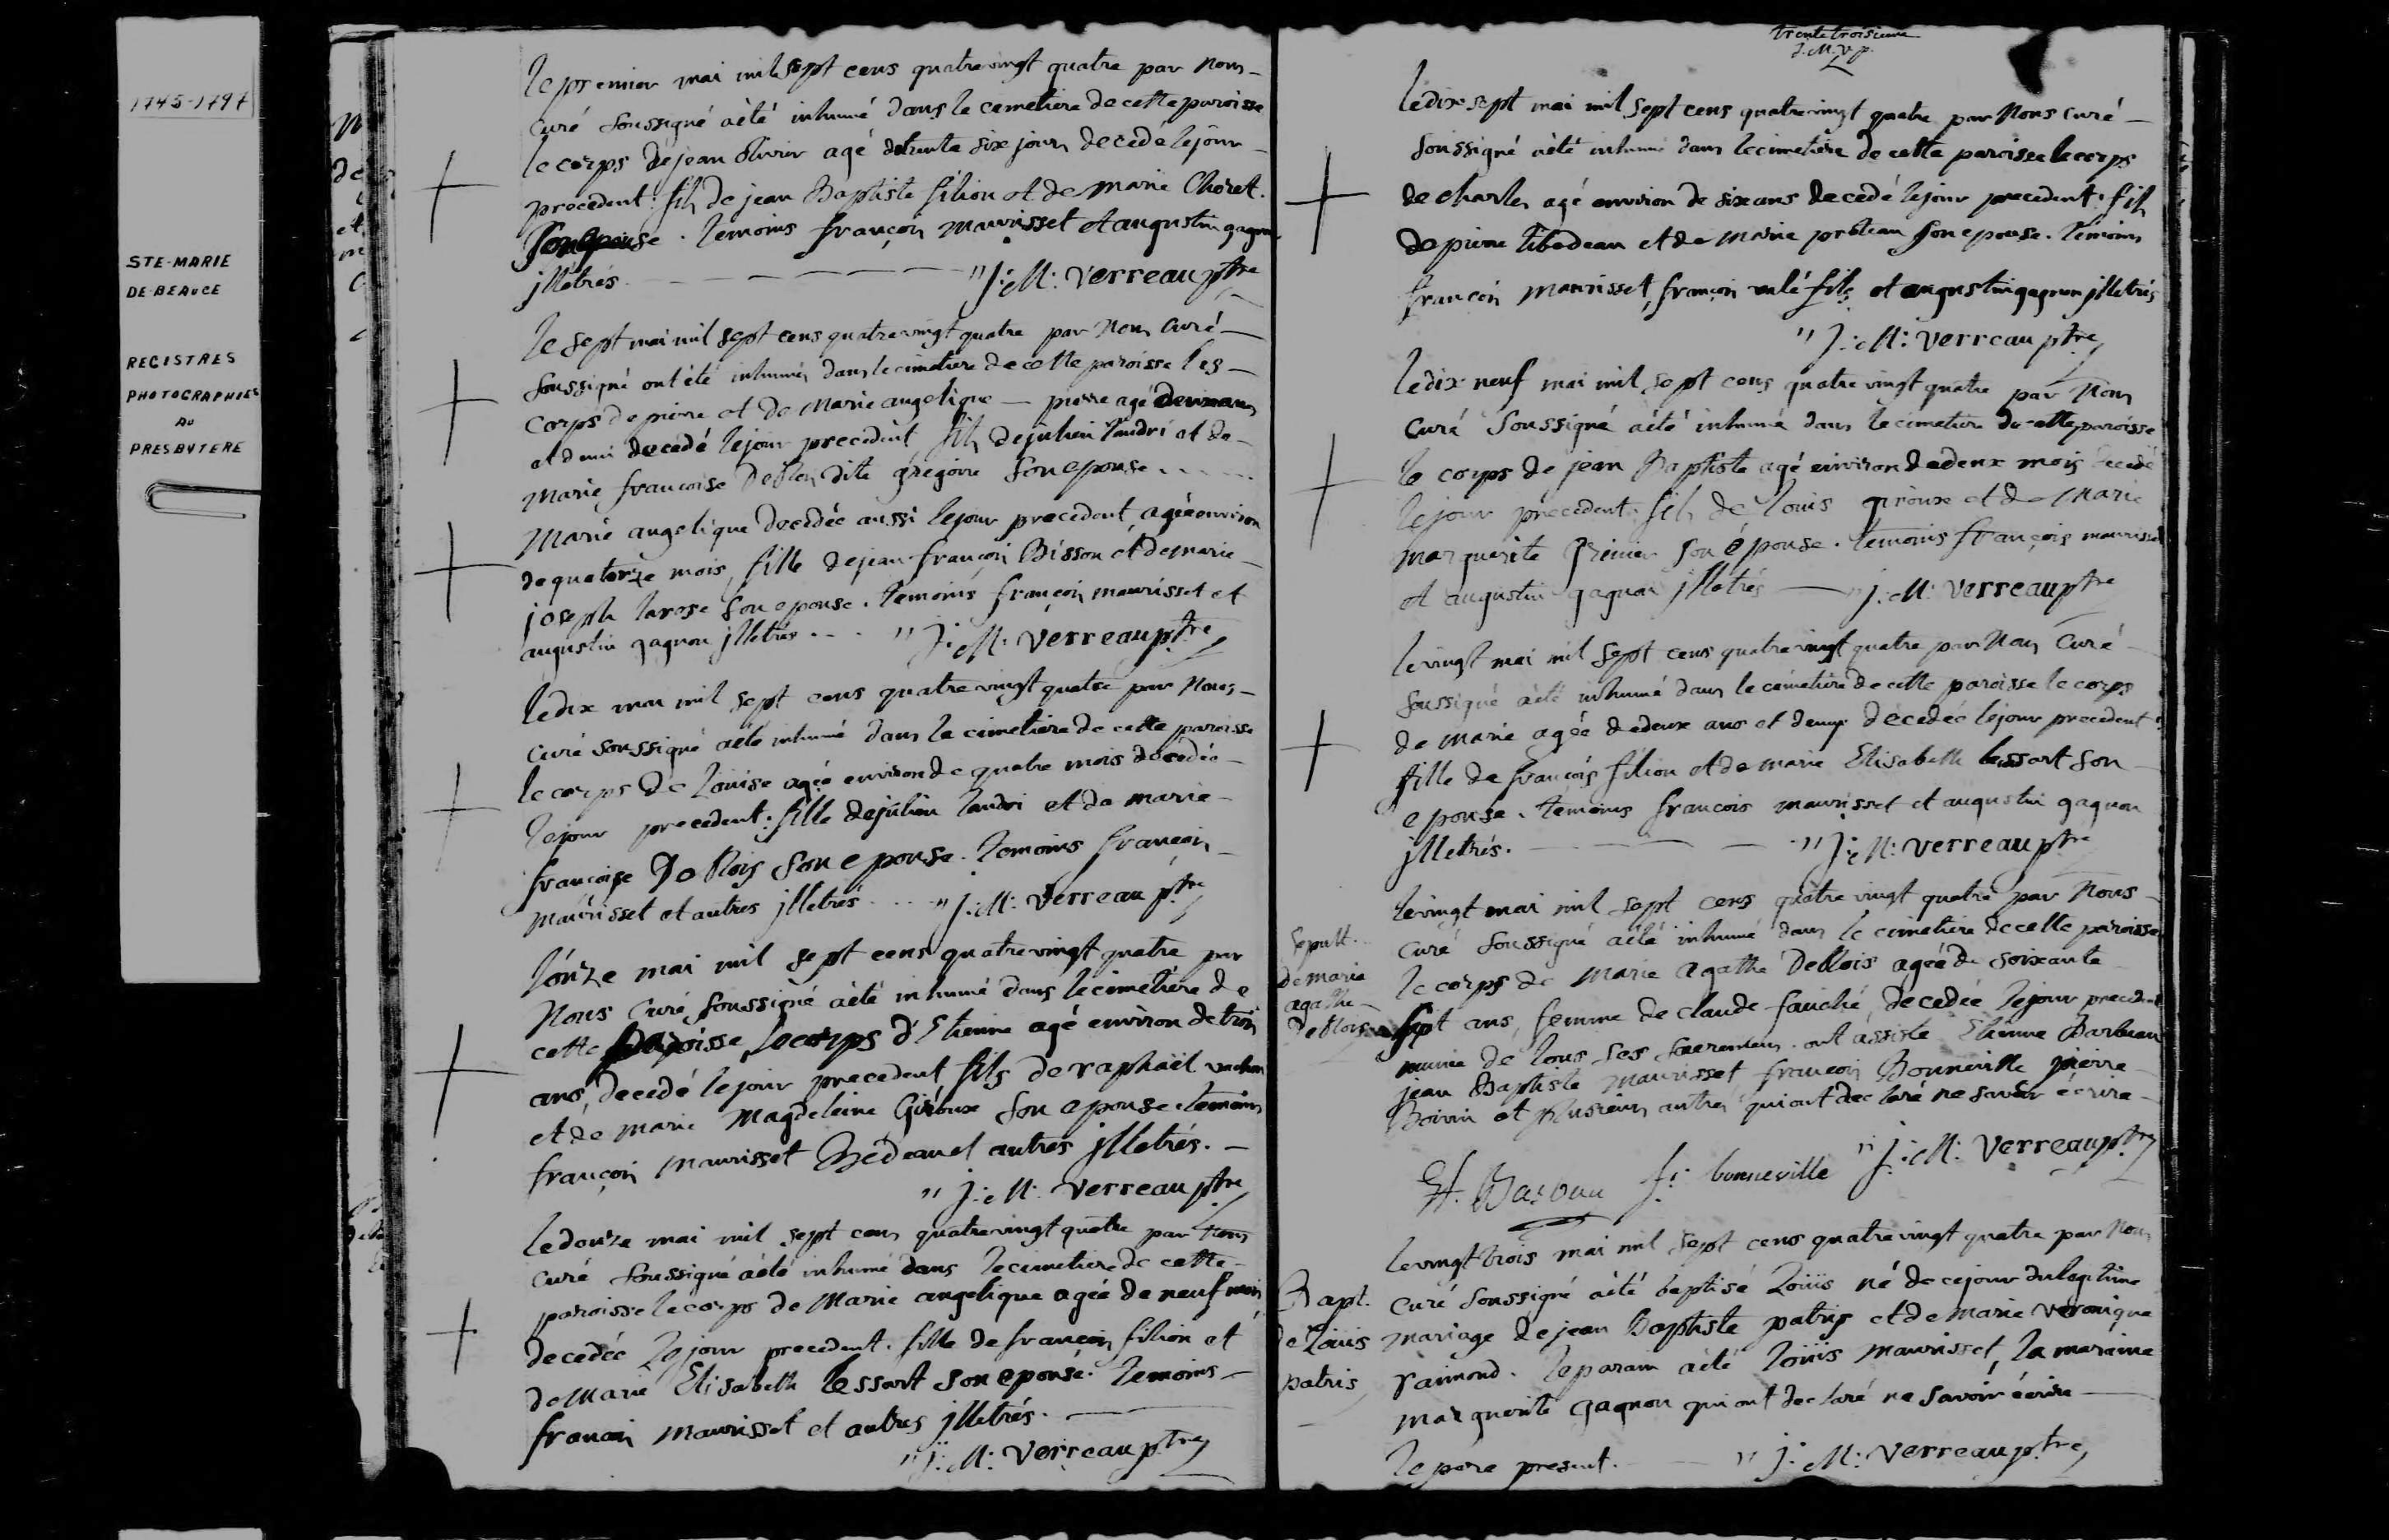 1745-1797
STE-MARIE
DE-BEAUCE
REGISTRES
PHOTOGRAPHIES
AU
PRESBYTERE
le premier mai mil sept cens quatre vingt quatre par nous
curé soussigné a èté inhumé dans le cemetiere de cette paroisse
le corps de jean Olivier agé de trente six jours decedé le jour
precedent: fils de jean Baptiste filion et de marie Choret.
son epouse. temoins françois maurisset et augustin gagnon
illetrés. "J: M: verreau ptre
le sept mai mil sept cens quatre vingt quatre par nous curé
soussigné ont été inhumés dans le cimetiere de cette paroisse les
corps de pierre et de Marie angelique — pierre agé deux ans
et demi decedé le jour precedent fils de julien landri et de
marie francoise DeBlois dite gregoire son epouse
Marie angelique decedée aussi le jour precedent, agée environ
de quatorze mois, fille de jean françois Bisson et de marie
joseph larose son epouse. temoins françois maurisset et
augustin gagnon illetrés... "J: M: verreau ptre
le dix mai mil sept cens quatre vingt quatre par nous
curé soussigné a èté inhumé dans le cimetiere de cette paroisse
le corps de Louise agée environ de quatre mois decedée
le jour precedent: fille de julien landri et de marie
francoise DeBlois son epouse. temoins françois
maurisset et autres illetrés... "J: M: verreau ptre
l'onze mai mil sept cens quatre vingt quatre par
nous curé soussigné a èté inhumé dans le cimetiere de
cette paroisse, le corps d'Etienne agé environ de trois
ans, decedé le jour precedent, fils de raphaël vachon
et de marie Magdeleine Giroux son epouse. temoins
françois maurisset Bedeau et autres illetrés.
"J: M: verreau ptre
le douze mai mil sept cens quatre vingt quatre par nous
curé soussigné a èté inhumé dans le cimetiere de cette
paroisse le corps de Marie angelique agée de neuf mois
decedée le jour precedent. fille de françois filion et
de Marie Elisabeth lessart son epouse. temoins
françois maurisset et autres illetrés.
"J: M: verreau ptre
trente troisieme
J. M. V. p.
le dix sept mai mil sept cens quatre vingt quatre par nous curé
soussigné a èté inhumé dans le cimetiere de cette paroisse le corps
de charles agé environ de six ans decedé le jour precedent: fils
de pierre tibodeau et de marie proteau son epouse. temoins
françois maurisset, françois fils et augustin gagnon illetrés
"J: M: verreau ptre
le dix neuf mai mil sept cens quatre vingt quatre par nous
curé soussigné a èté inhumé dans le cimetiere de cette paroisse
le corps de jean Baptiste agé environ de deux mois decedé
le jour precedent: fils de Louis giroux et de Marie
marguerite Grenier son épouse. temoins françois maurisset
et augustin gagnon illetrés — "J: M: verreau ptre
le vingt mai mil sept cens quatre vingt quatre par nous curé
soussigné a èté inhumé dans le cimetiere de cette paroisse le corps
de marie agée de deux ans et demy decedée le jour precedent:
fille de françois filion et de marie Elisabeth lessart son
epouse. temoins francois maurisset et augustin gagnon
illetrés. "J: M: verreau ptre
Sepult.
de marie
agathe
deblois
le vingt mai mil sept cens quatre vingt quatre par nous
curé soussigné a èté inhumé dans le cimetiere de cette paroisse
le corps de Marie agathe Deblois agée de soixante
sept ans, femme de claude fauché, decedée le jour precedent
munie de tous ses sacremens. ont assisté Etienne Barbeau
jean Baptiste Maurisset françois Bonneville pierre
Boivin et plusieurs autres qui ont declaré ne savoir écrire
Et. Barbau f: bonneville "J: M: verreau ptre
Bapt.
de Louis
patris
le vingt trois mai mil sept cens quatre vingt quatre par nous
curé soussigné a èté baptisé Louis né de ce jour du legitime
mariage de jean Baptiste patris et de marie veronique
raimond. le parain a èté Louis maurisset, la maraine
marguerite gagnon qui ont declaré ne savoir écrire
le pere present. — "J: M: verreau ptre